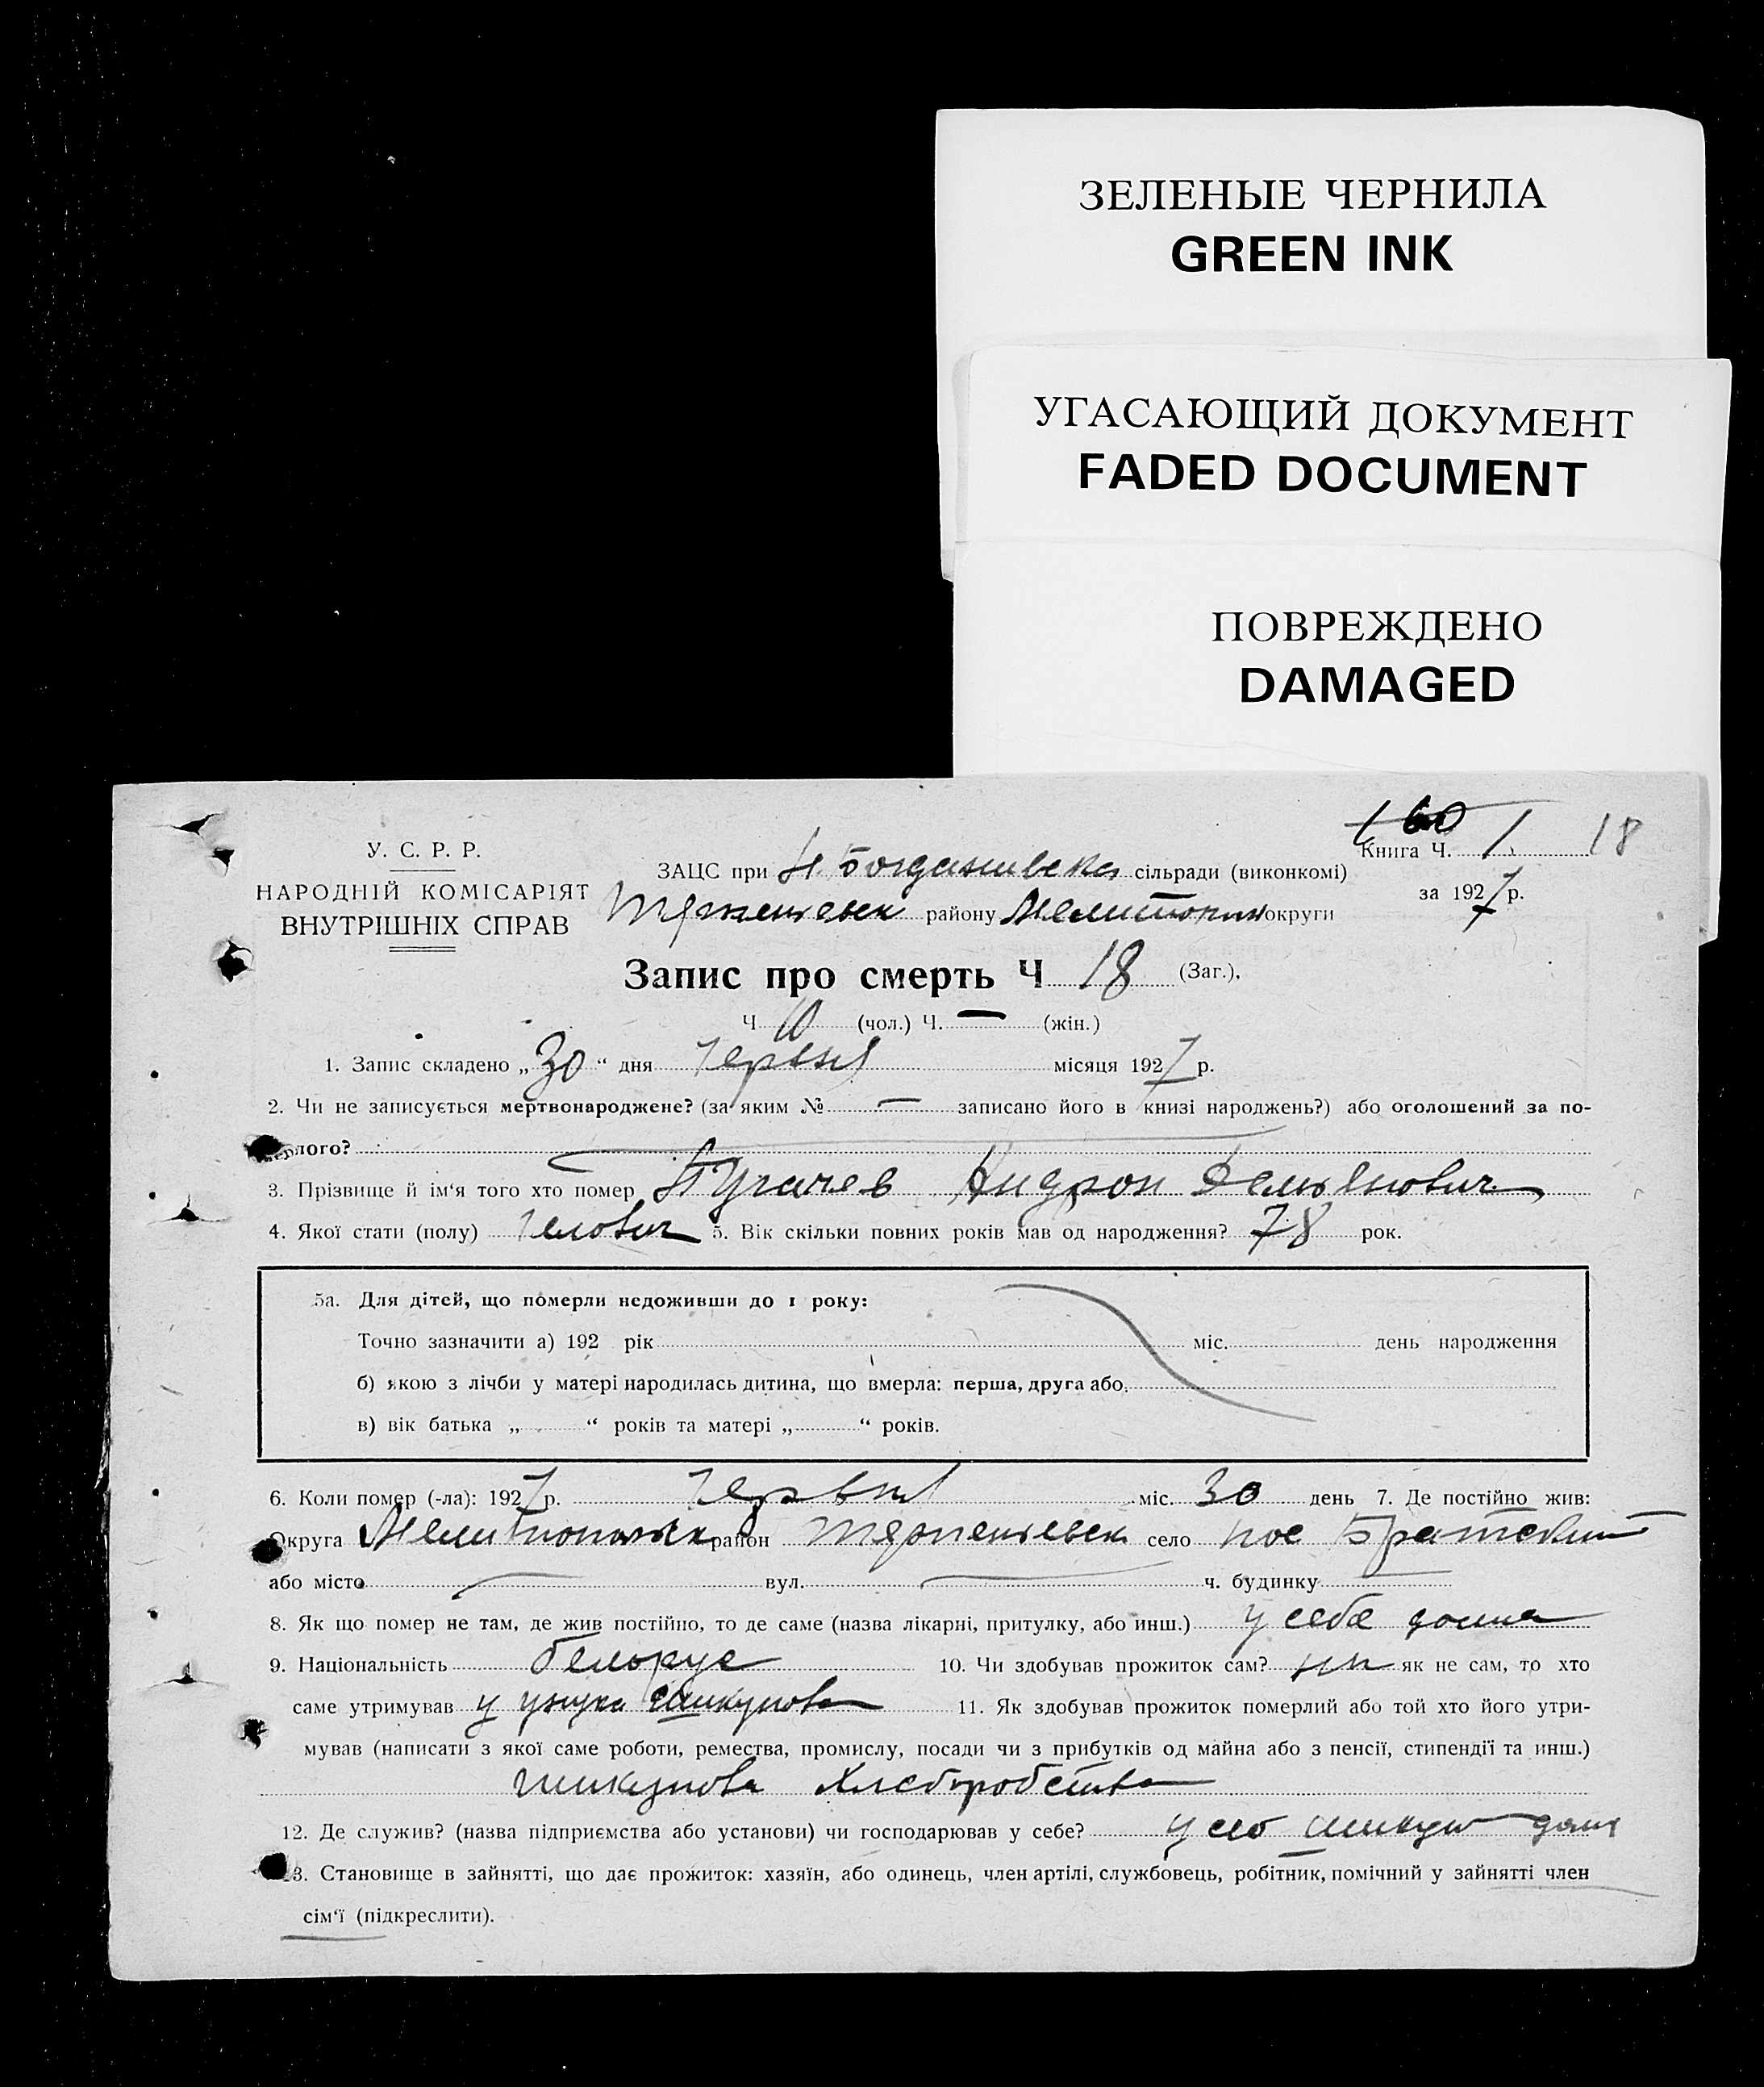 ЗЕЛЕНЫЕ ЧЕРНИЛА
GREEN INK
УГАСАЮЩИЙ ДОКУМЕНТ
FADED DOCUMENT
ПОВРЕЖДЕНО
DAMAGED
У. С. Р. Р.
НАРОДНІЙ КОМІСАРІЯТ
ВНУТРІШНІХ СПРАВ
160
Книга Ч. 1 18
за 1927 р.
ЗАЦС при Н. Богданивека сільради (виконкомі)
району Мелитопил округи
Запис про смерть Ч 18 (Заг.),
Ч 10 (чол.) Ч. — (жін.)
1. Запис складено „30“ дня Червня місяця 1927 р.
2. Чи не записується мертвонароджене? (за яким № — записано його в книзі народжень?) або оголошений за по-
мерлого?
3. Прізвище й ім‘я того хто помер Пугачев Андрон Демянович
4. Якої стати (полу) Челович 5. Вік скільки повних років мав од народження? 78 рок.
5а. Для дітей, що померли недоживши до 1 року:
Точно зазначити а) 192 рік міс. день народження
б) якою з лічби у матері народилась дитина, що вмерла: перша, друга або
в) вік батька „ “ років та матері „ “ років.
6. Коли помер (-ла): 1927 р. Червня міс. 30 день 7. Де постійно жив:
Округа Мелитопольск район Терпеньевск село пос Братский
або місто — вул. — ч. будинку —
8. Як що помер не там, де жив постійно, то де саме (назва лікарні, притулку, або инш.) у себе дома
9. Національність белорус 10. Чи здобував прожиток сам? як не сам, то хто
саме утримував у унука Шикунова 11. Як здобував прожиток померлий або той хто його утри-
мував (написати з якої саме роботи, ремества, промислу, посади чи з прибутків од майна або з пенсії, стипендії та инш.)
Шикунова Хлебробства
12. Де служив? (назва підприємства або установи) чи господарював у себе?
13. Становище в зайнятті, що дає прожиток: хазяїн, або одинець, член артілі, службовець, робітник, помічний у зайнятті член
сім‘ї (підкреслити).